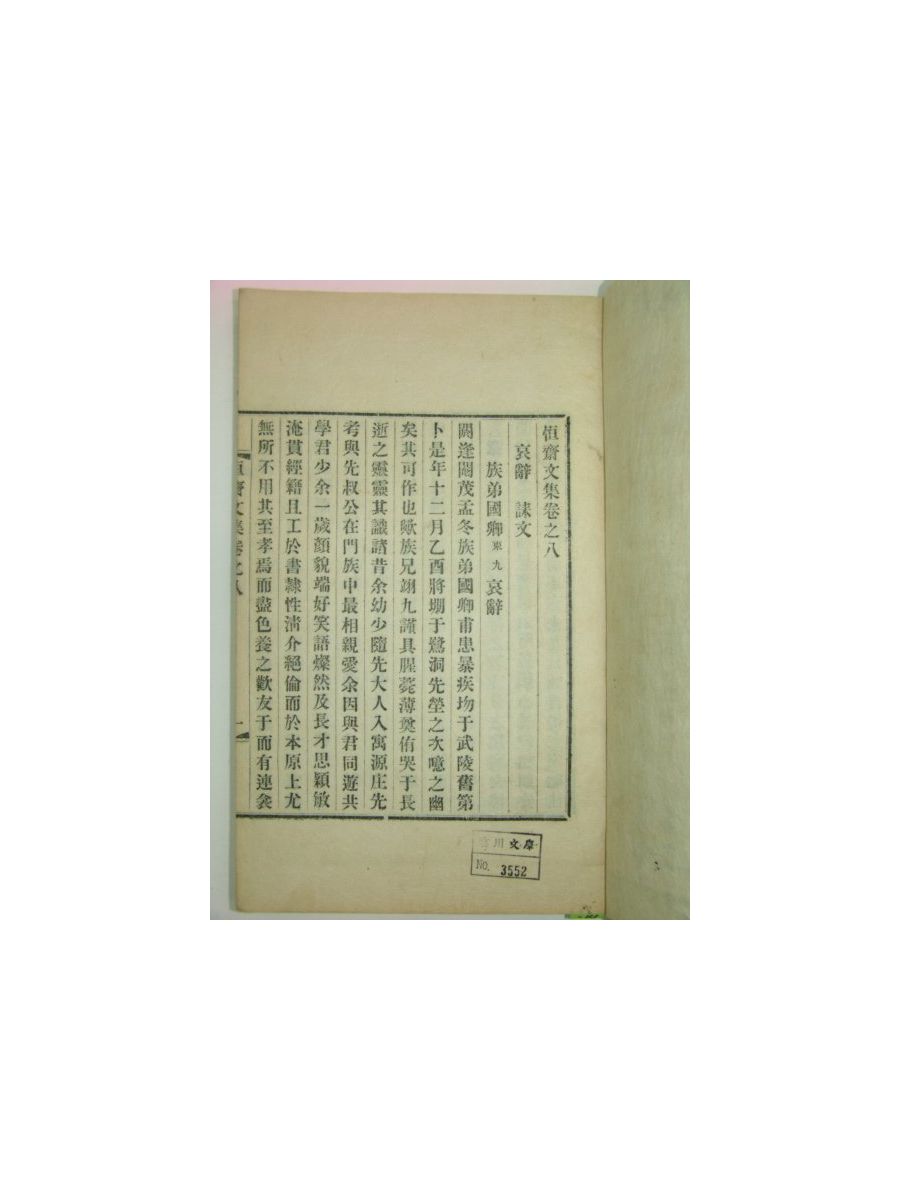 恒齋文集卷之八
哀辭 誄文
族弟國卿東九哀辭
閼逢閹茂孟冬族弟國卿甫患暴疾歿于武陵舊第
卜是年十二月乙酉將堋于鷺洞先塋之次噫之幽
矣其可作也歟族兄翊九謹具腥薧薄奠侑哭于長
逝之靈靈其識諸昔余幼少隨先大人入寓源庄先
考與先叔公在門族中最相親愛余因與君同遊共
學君少余一歲顔貌端好笑語燦然及長才思穎敏
淹貫經籍且工於書隷性淸介絕倫而於本原上尤
無所不用其至孝焉而盡色養之歡友于而有連衾
恒齋文集卷之八 一
川文庫
No. 3552